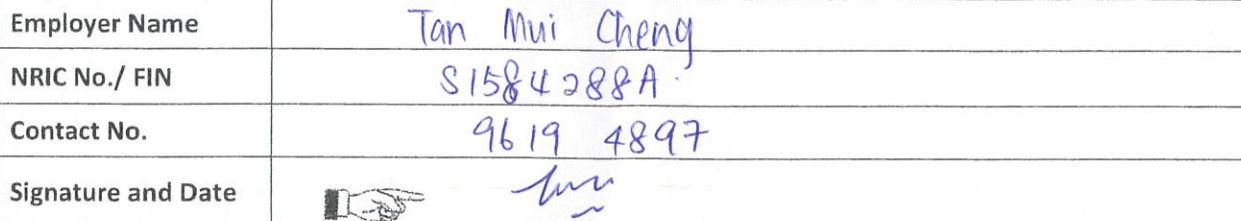 Employer Name Tan Mui Cheng
NRIC No./ FIN S1584288A
Contact No. 9619 4897
Signature and Date